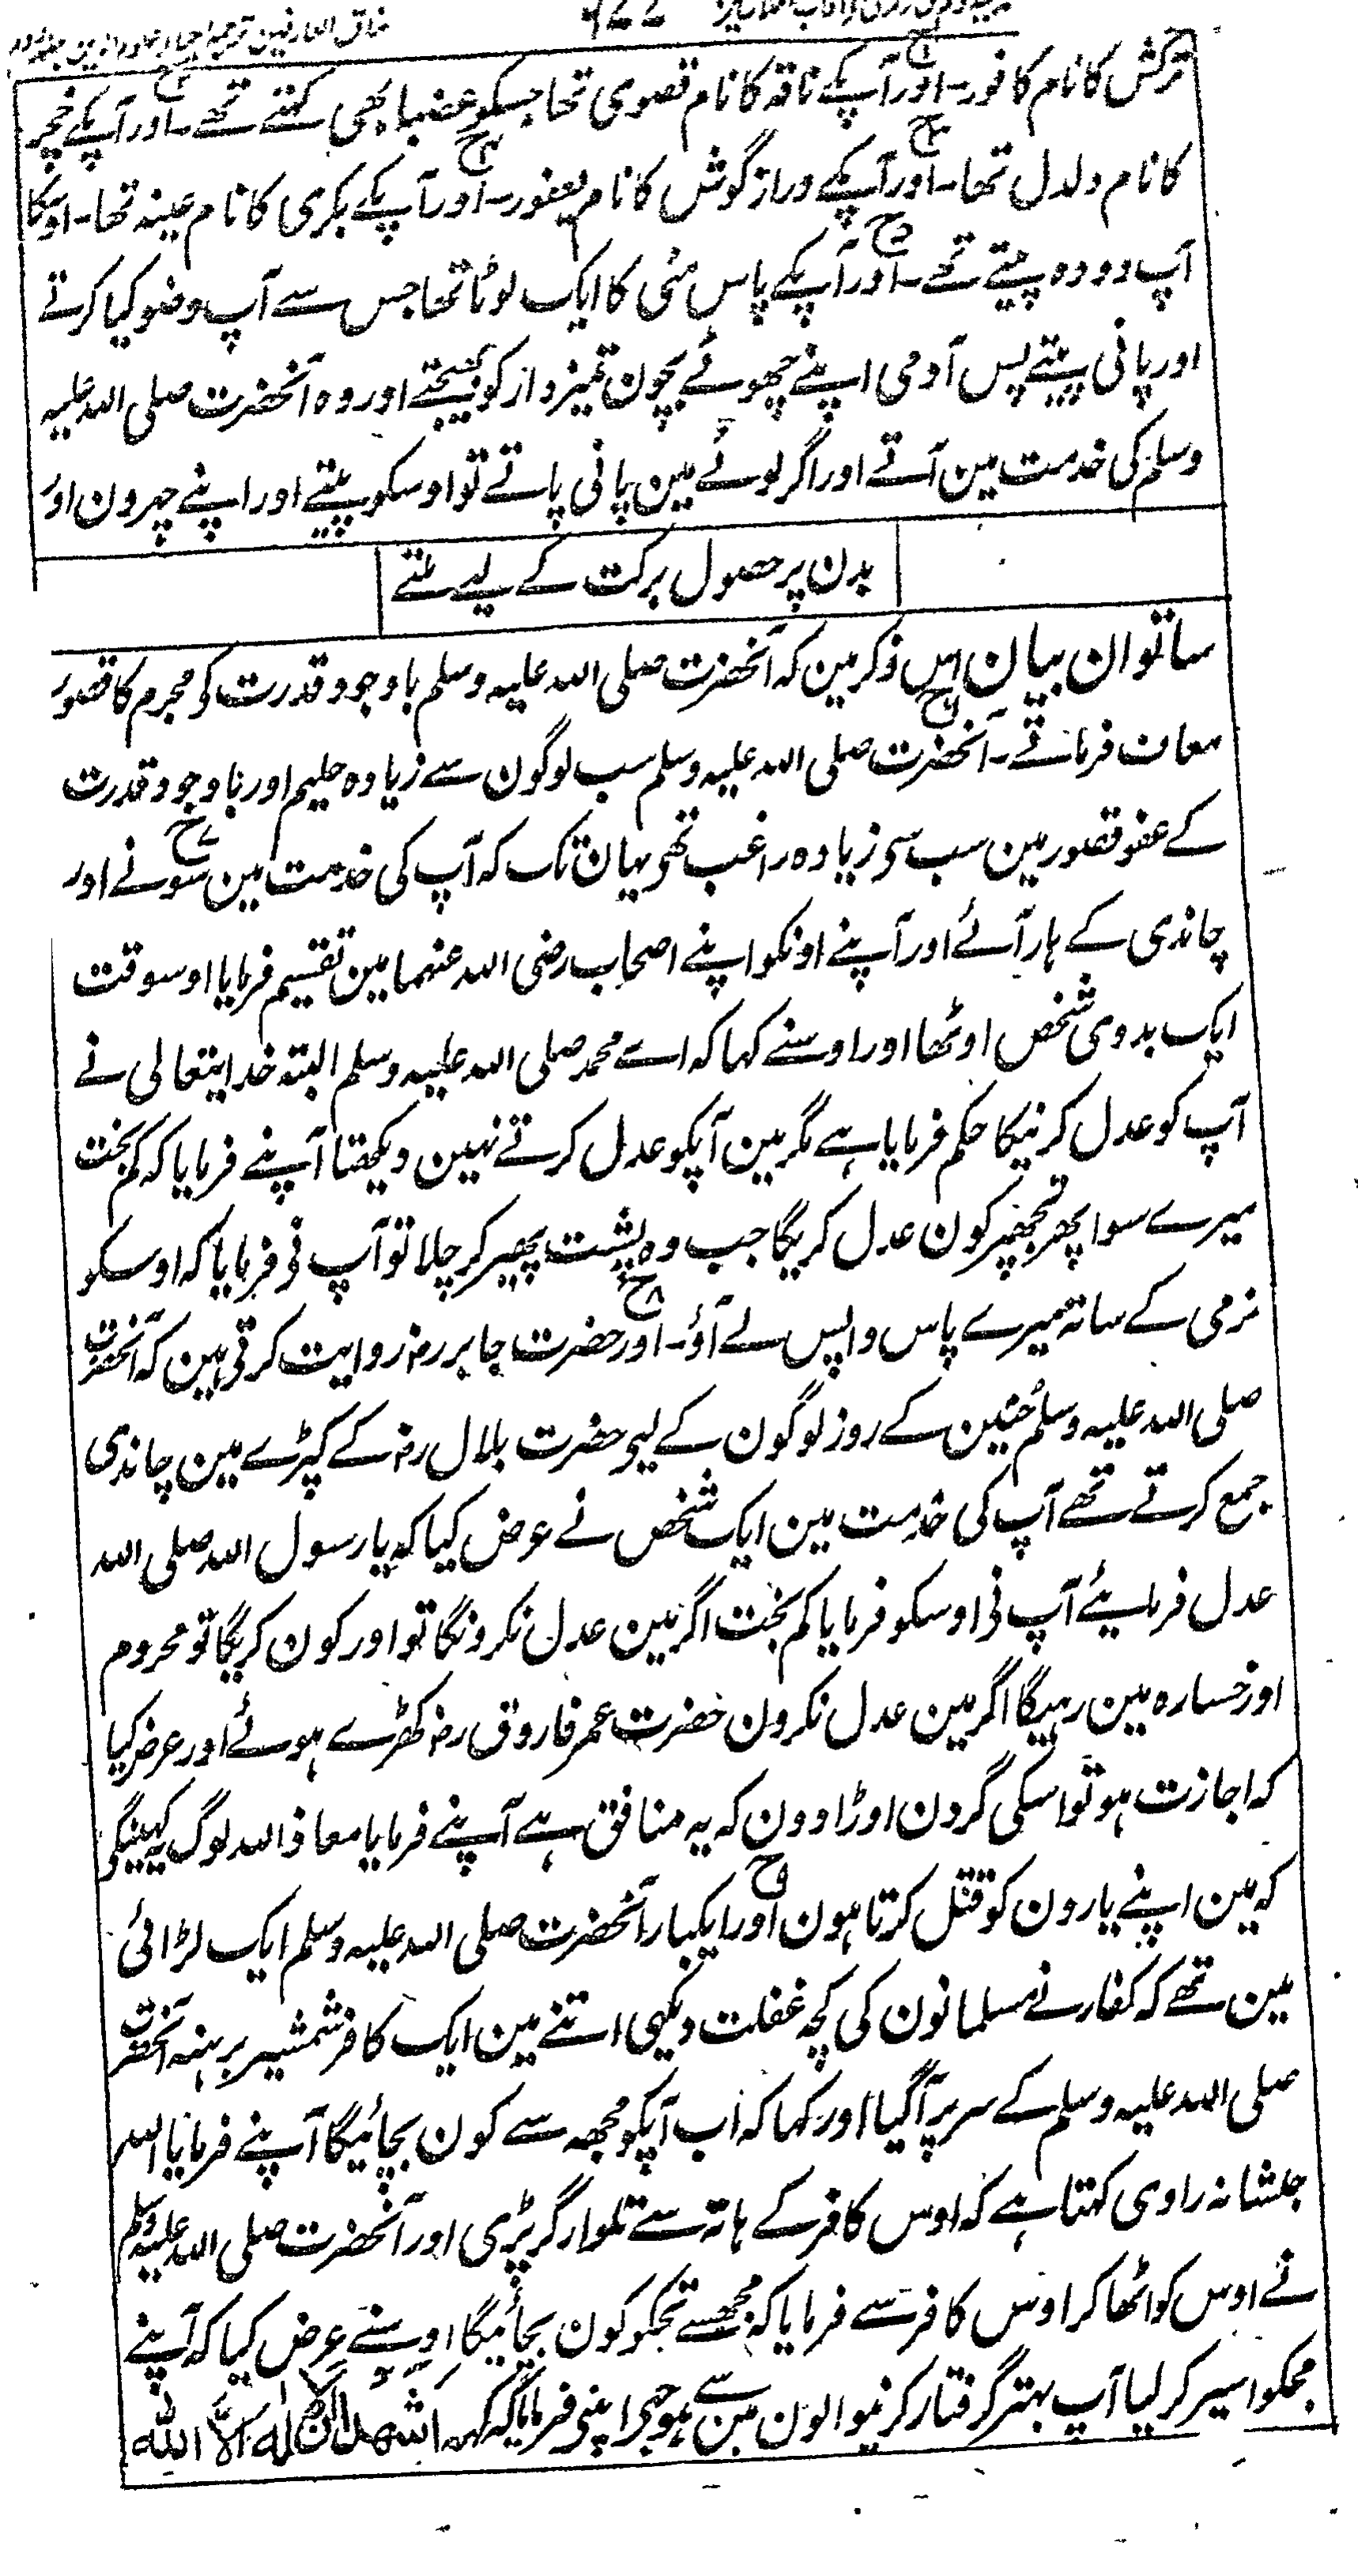 مذاق العارفین ترجمہ احیاء علوم الدین جلد دوم
ترکش کا نام کافور۔ اور آپکے ناقہ کا نام قصوی تھا جسکو عضبا بھی کہتے تھے۔ اور آپکے خچر
کا نام دلدل تھا۔ اور آپکے دراز گوش کا نام یعفور۔ اور آپکے بکری کا نام عینہ تھا۔ اوسکا
آپ دودہ پیتے تھے۔ اور آپکے پاس مٹی کا ایک لوٹا تھا جس سے آپ وضو کیا کرتے
اور پانی پیتے پس آدمی اپنے چھوٹے بچون تمیزدار کو بھیجتے اور وہ آنحضرت صلی اللہ علیہ
وسلم کی خدمت مین آتے اور اگر لوٹے مین پانی پاتے تو اوسکو پیتے اور اپنے چہرون اور
بدن پر حصول برکت کے لیے ملتے
ساتوان بیان اس ذکر مین کہ آنحضرت صلی اللہ علیہ وسلم باوجود قدرت کے مجرم کا قصور
معاف فرماتے۔ آنحضرت صلی اللہ علیہ وسلم سب لوگون سے زیادہ حلیم اور باوجود قدرت
کے عفو قصور مین سب سی زیادہ راغب تھی یہان تک کہ آپ کی خدمت مین سونے اور
چاندی کے ہار آئے اور آپنے اونکو اپنے اصحاب رضی اللہ عنہما مین تقسیم فرمایا اوسوقت
ایک بدوی شخص اوٹھا اور اوسنے کہا کہ اے محمد صلی اللہ علیہ وسلم البتہ خدایتعالی نے
آپ کو عدل کرنیکا حکم فرمایا ہے مگر مین آپکو عدل کرتے نہین دیکھتا آپنے فرمایا کہ کم بخت
میرے سوا پھر تجھپر کون عدل کریگا جب وہ پشت پھیر کر چلا تو آپ نی فرمایا کہ اوسکو
نرمی کے ساتہ میرے پاس واپس لے آؤ۔ اور حضرت جابر رضہ روایت کرتی ہین کہ آنحضرت
صلی اللہ علیہ وسلم حنین کے روز لوگون کے لیے حضرت بلال رضہ کے کپڑے مین چاندی
جمع کرتے تھے آپ کی خدمت مین ایک شخص نے عرض کیا کہ یا رسول اللہ صلی اللہ
عدل فرمایئے آپ نی اوسکو فرمایا کم بخت اگر مین عدل نکرونگا تو اور کون کریگا تو محروم
اور خسارہ مین رہیگا اگر مین عدل نکرون حضرت عمر فاروق رضہ کھڑے ہوئے اور عرض کیا
کہ اجازت ہو تو اسکی گردن اوڑا دون کہ یہ منافق ہے آپنے فرمایا معاذ اللہ لوگ یہ کہینگے
کہ مین اپنے یارون کو قتل کرتا ہون اور ایکبار آنحضرت صلی اللہ علیہ وسلم ایک لڑائی
مین تھے کہ کفار نے مسلمانون کی کچہ غفلت دیکھی اتنے مین ایک کافر شمشیر برہنہ آنحضرت
صلی اللہ علیہ وسلم کے سر پر آگیا اور کہا کہ اب آپکو مجھہ سے کون بچائیگا آپنے فرمایا اللہ
جلشانہ راوی کہتا ہے کہ اوس کافر کے ہاتہ سے تلوار گر پڑی اور آنحضرت صلی اللہ علیہ وسلم
نے اوس کو اٹھا کر اوس کافر سے فرمایا کہ مجھسے تجکو کون بچائیگا اوسنے عرض کیا کہ آپنے
مجکو اسیر کر لیا آپ بہتر گرفتار کرنیوالون مین سے ہوجیے اپنی فرمایا کہ کہہ اشھد ان لا الہ الا اللہ